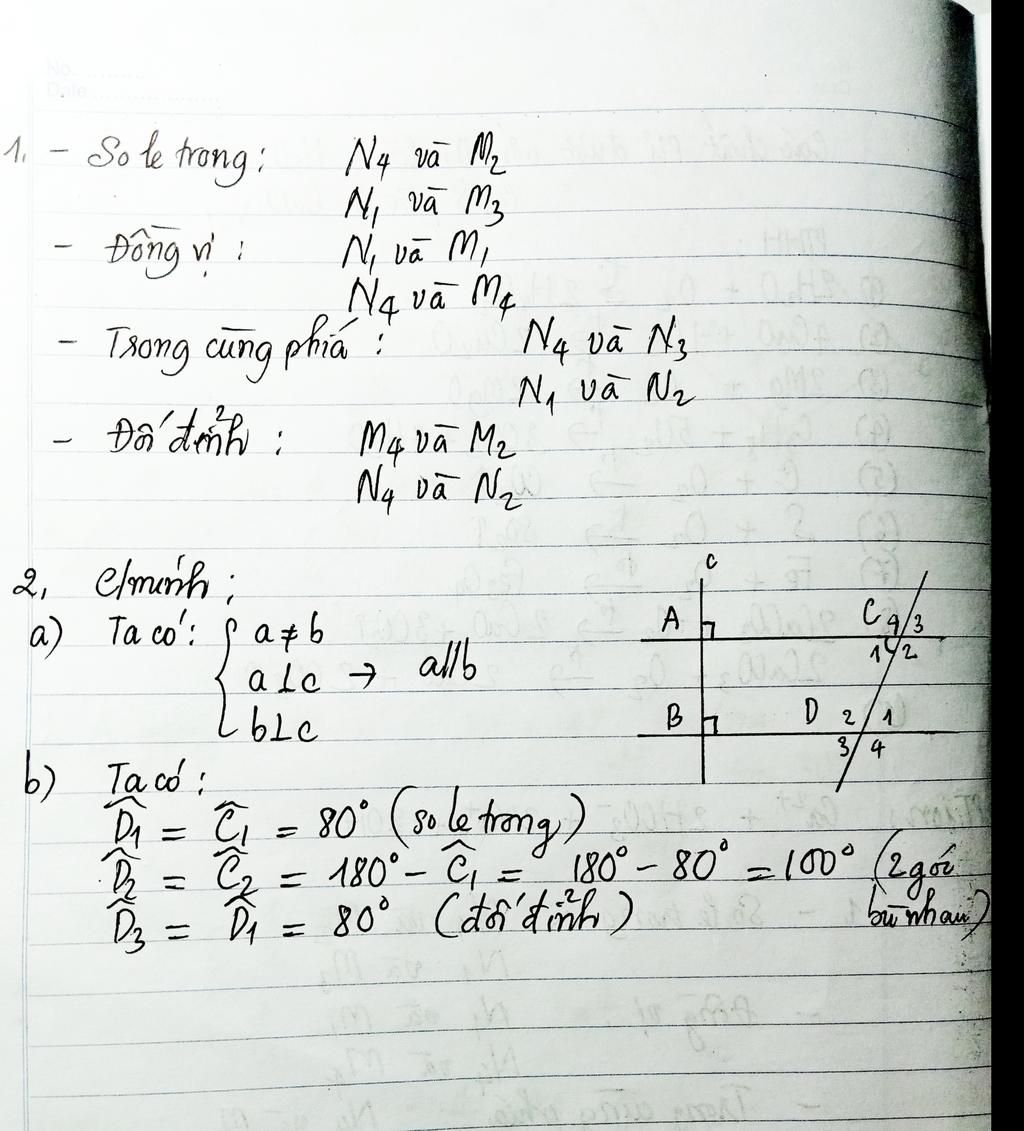 No. ............
Date ....................
1. - So le trong: N4 và M2
N1 và M3
- Đồng vị: N1 và M1
N4 và M4
- Trong cùng phiá: N4 và N3
N1 và N2
- Đối đỉnh: M4 và M2
N4 và N2
2, C/minh;
a) Ta có: { a ≠ b
a ⊥ c → a//b
b ⊥ c
c
A C 4 3
1 2
B D 2 1
3 4
b) Ta có:
D̂1 = Ĉ1 = 80° (so le trong)
D̂2 = Ĉ2 = 180° - Ĉ1 = 180° - 80° = 100° (2 góc bù nhau)
D̂3 = D̂1 = 80° (đối đỉnh)